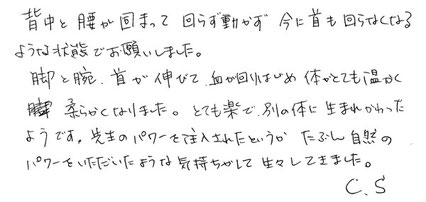 背中と腰が固まって 回らず動かず 今に首も回らなくなる
ような状態でお願いしました。
脚と腕、首が伸びて、血が回りはじめ 体がとても温かく
柔らかくなりました。とても楽で、別の体に生まれかわった
ようです。先生のパワーを注入されたというか たぶん自然の
パワーをいただいたような気持ちがして 生々してきました。
C.S